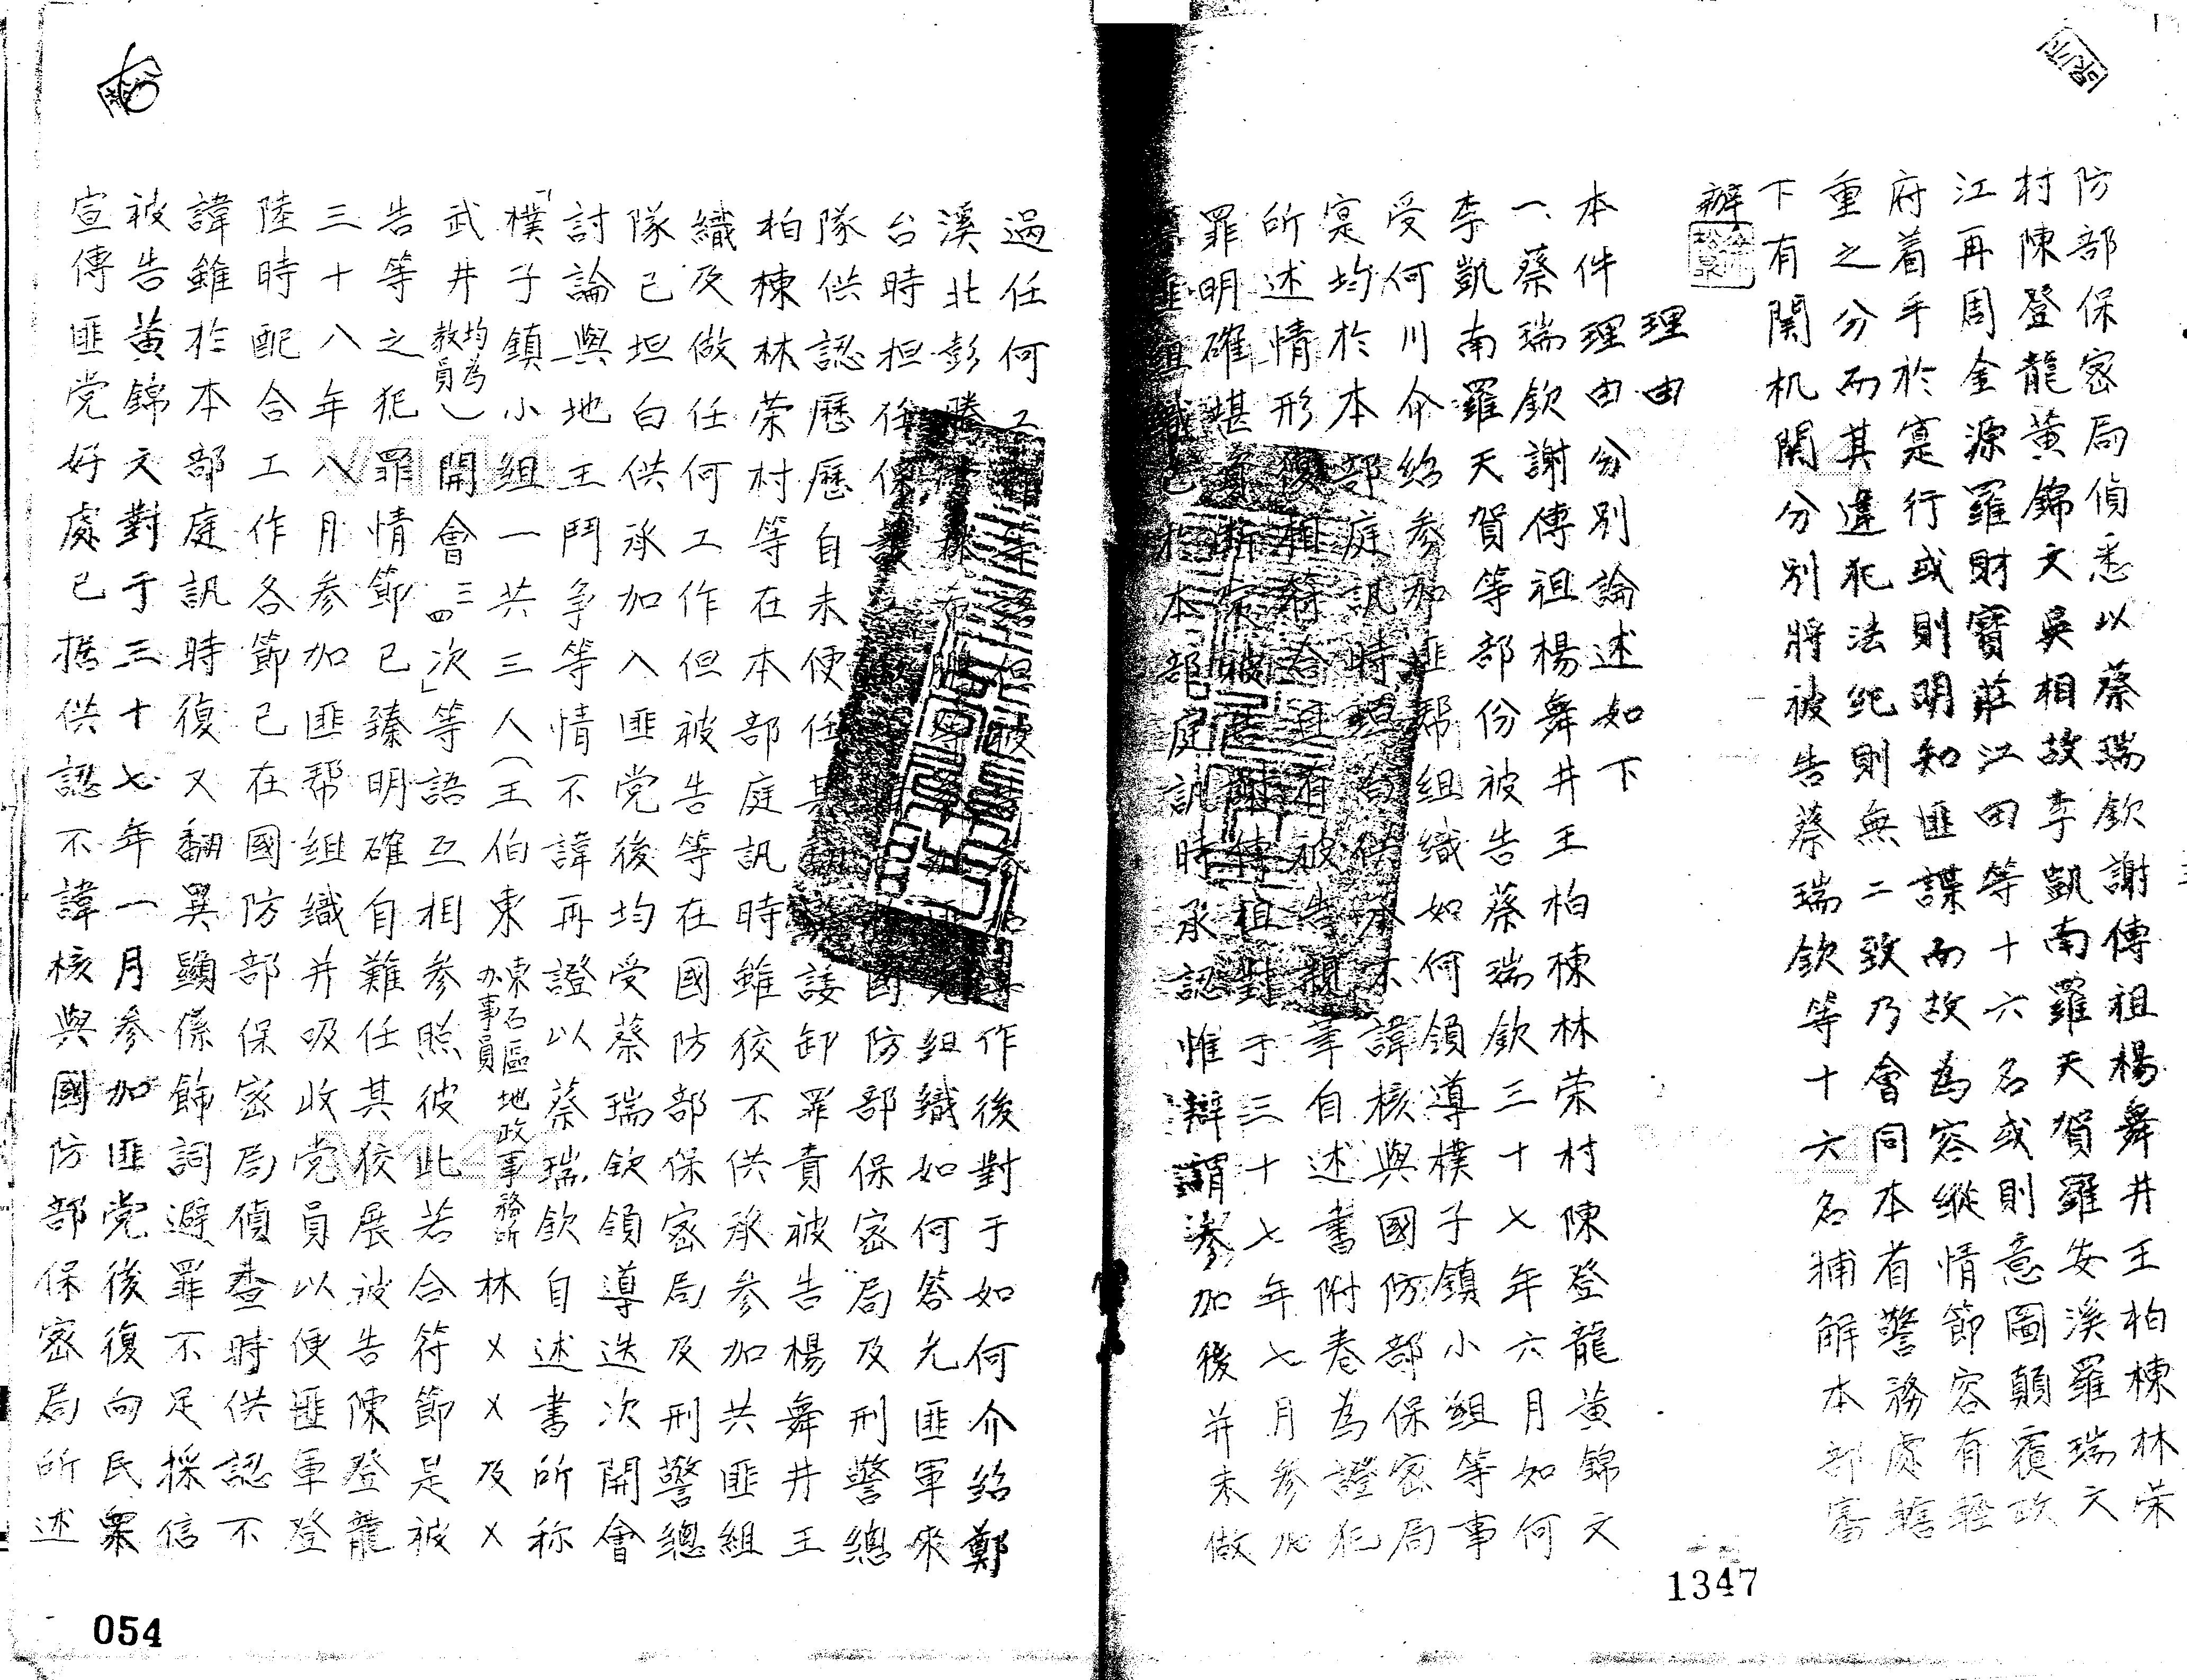 防部保密局偵悉以蔡瑞欽謝傳祖楊舞井王柏棟林荣
村陳登龍黃錦文吳相故李凱南羅天賀羅安溪羅瑞文
江再周金源羅財寶莊江田等十六名或則意圖顛覆政
府着手於寔行或則明知匪諜而故為容縱情節容有輕
重之分而其違犯法紀則無二致乃會同本省警務處轄
下有関机関分別將被告蔡瑞欽等十六名捕解本部審
辦
理由
本件理由分別論述如下
一、蔡瑞欽謝傳祖楊舞井王柏棟林荣村陳登龍黃錦文
李凱南羅天賀等部份被告蔡瑞欽三十七年六月如何
受何川介紹参加匪帮組織如何領導樸子鎮小組等事
寔均於本部庭訊時坦白供承不諱核與國防部保密局
所述情形復相符合且有被告親筆自述書附卷為證犯
罪明確堪資断被告謝傳祖對于三十七年七月参加
匪組織已於本部庭訊時承認惟辯謂参加後并未做
過任何工作但被参加作後對于如何介紹鄭
溪北彭勝組織如何答允匪軍來
台時担任保護國防部保密局及刑警總
隊供認歷歷自未便任其諉卸罪責被告楊舞井王
柏棟林荣村等在本部庭訊時雖狡不供承参加共匪組
織及做任何工作但被告等在國防部保密局及刑警總
隊已坦白供承加入匪党後均受蔡瑞欽領導迭次開會
討論與地主鬥争等情不諱再證以蔡瑞欽自述書所称
「樸子鎮小組一共三人（王伯東東石區地政事務所办事員林××及×
武井均為教員）開會三四次」等語互相参照彼此若合符節是被
告等之犯罪情節已臻明確自難任其狡展被告陳登龍
三十八年八月参加匪帮組織并吸收党員以便匪軍登
陸時配合工作各節已在國防部保密局偵查時供認不
諱雖於本部庭訊時復又翻異顯係飾詞避罪不足採信
被告黃錦文對于三十七年一月参加匪党後復向民眾
宣傳匪党好處已據供認不諱核與國防部保密局所述
054
1347